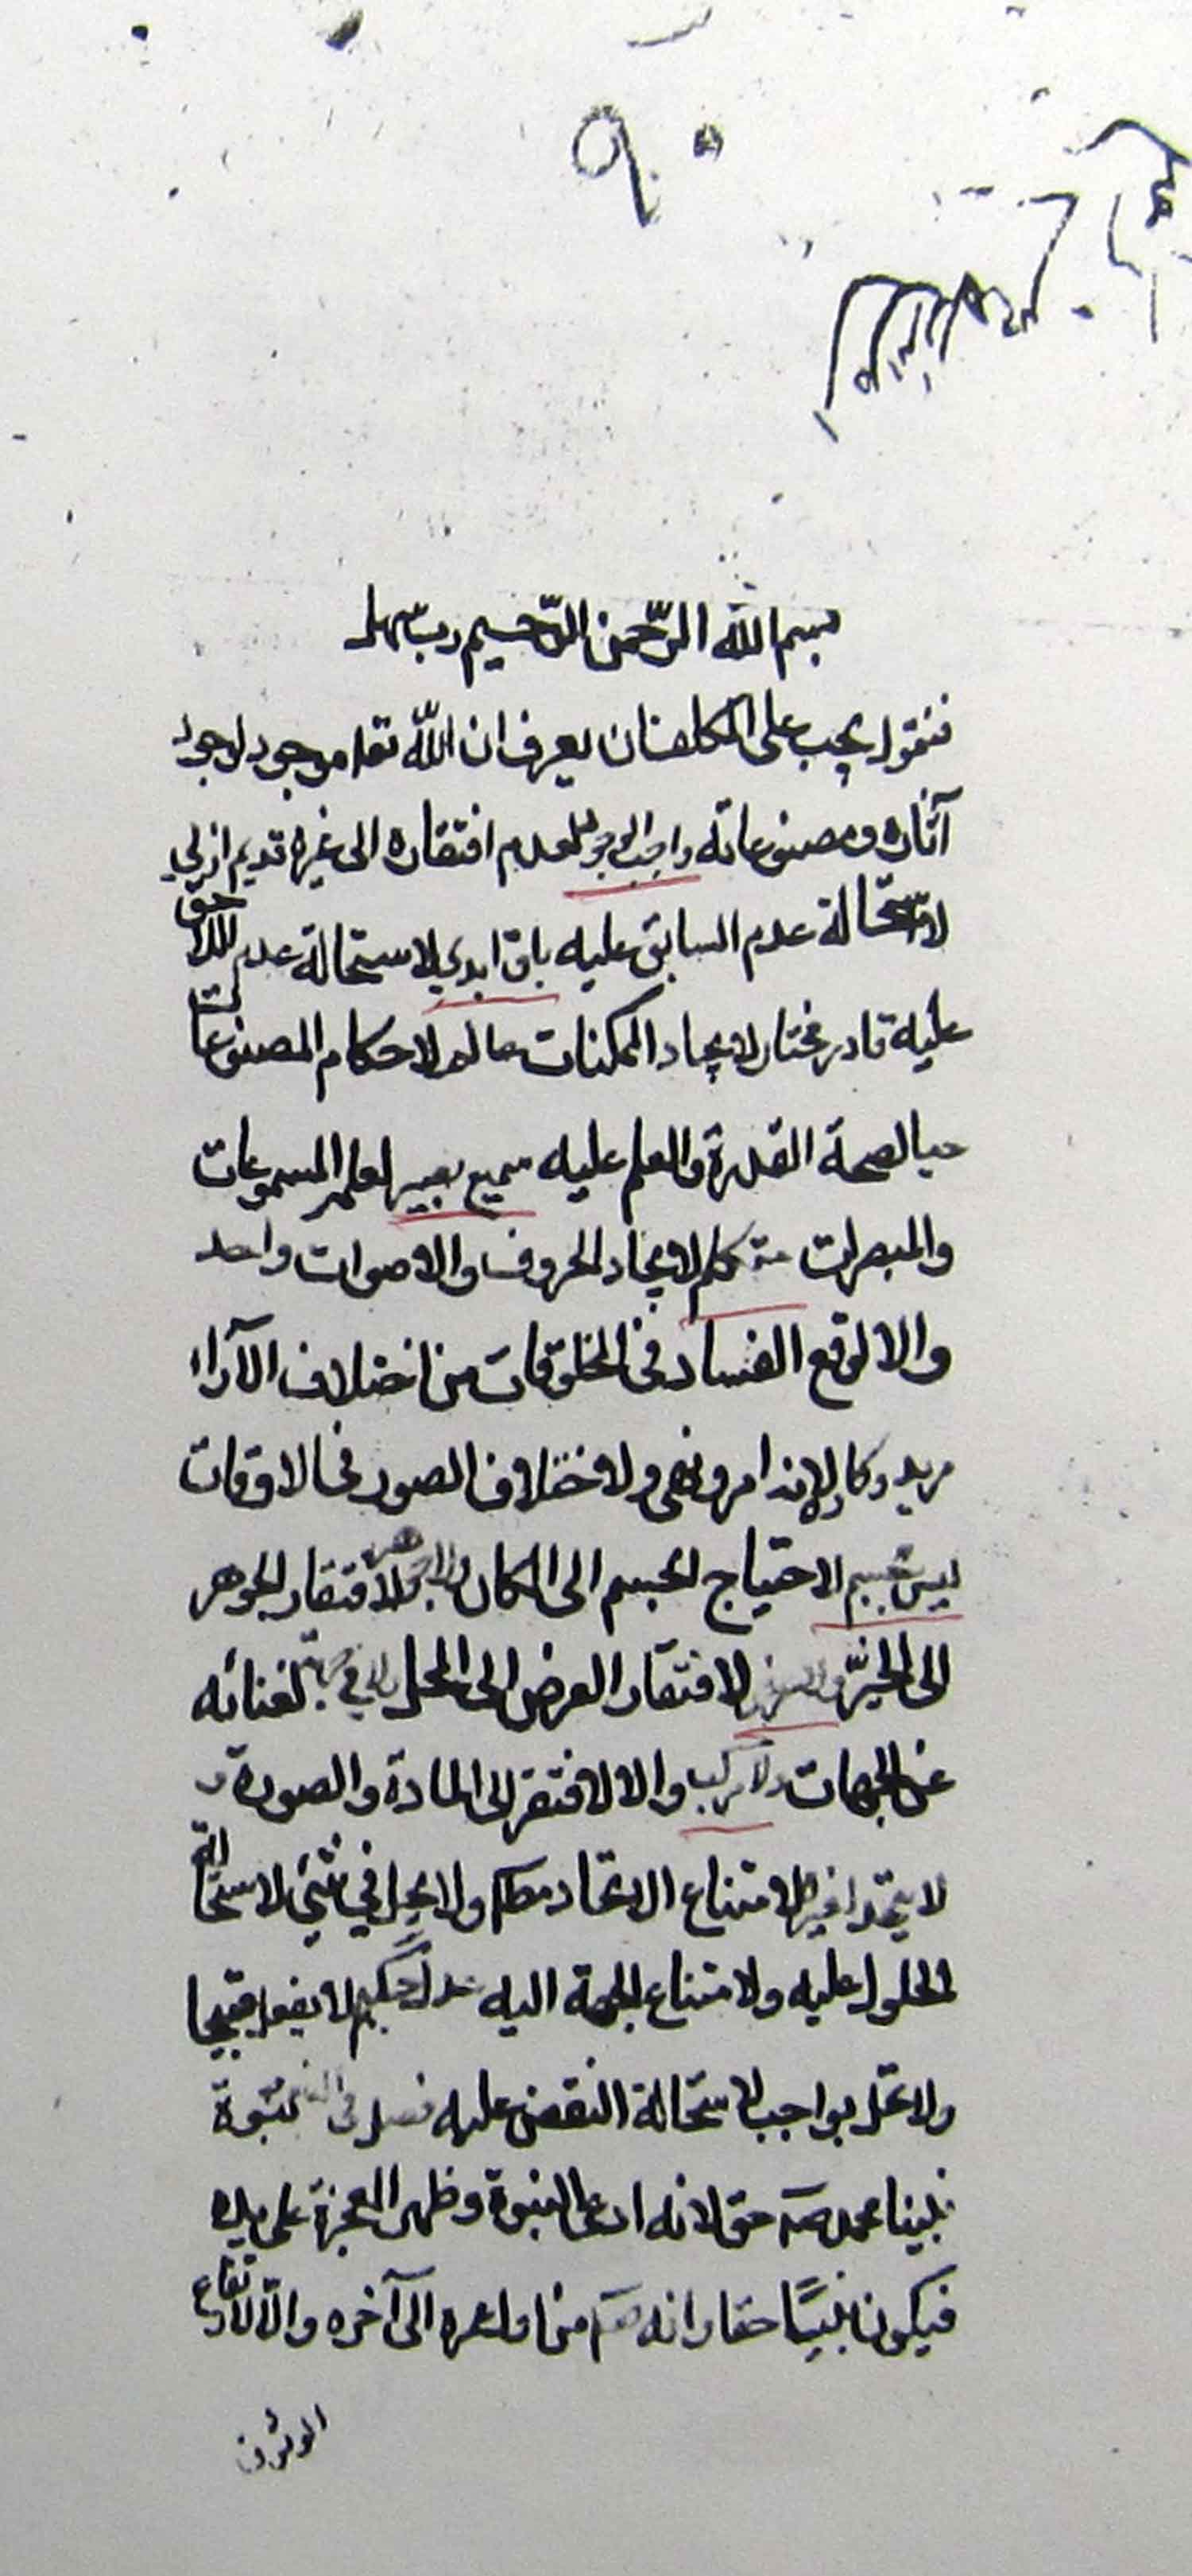 ٩٠
بسم الله الرّحمن الرّحيم رب سهل
فنقول يجب على المكلف ان يعرف ان اللّه تعا موجود لوجود
آثاره ومصنوعاته واجب الوجود لعدم افتقاره الى غيره قديم ازلي
لاستحالة عدم السابق عليه باق ابدي لاستحالة عدم اللاحق
عليه قادر مختار لايجاد الممكنات عالم لاحكام المصنوعات
حيا لصحة القدرة والعلم عليه سميع بصير لعلمه المسموعات
والمبصرات متكلم لايجاد الحروف والاصوات واحد
والا لوقع الفساد في المخلوقات من اختلاف الآراء
مريد وكاره لانه امر ونهى ولاختلاف الصور في الاوقات
ليس بجسم لاحتياج الجسم الى المكان ولا جوهر لافتقار الجوهر
الى الحيّز ولا عرض لافتقار العرض الى المحل ولا في جهة لغنائه
عن الجهات ولا مركب والا لافتقر الى المادة والصورة و
لا يتحد بغيره لامتناع الاتحاد مطم ولا يحل في شيئ لاستحالة
الحلول عليه ولامتناع الجهة اليه عدل حكيم لا يفعل قبيحا
ولا يخل بواجب لاستحالة النقض عليه فصل في النبوة نبوة
نبينا محمد صم حق لانه ادعا النبوة وظهر المعجزة على يده
فيكون نبيًا حقا وانه معصوم من اول عمره الى آخره والّا لارتفاع
الوثوق